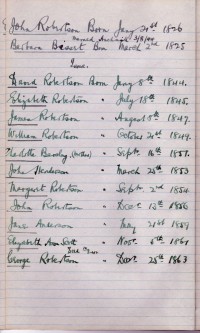 John Robertson Born Jany 24th 1826
Barbara Bisset Born March 2nd 1825
David Robertson Born Jany 8th 1844.
Elizabeth Robertson " July 18th 1845.
James Robertson " August 5th 1847.
William Robertson " October 24th 1849.
" Sept. 16th 1851.
John Henderson " March 28th 1853
Margaret Robertson " Septr. 2nd 1854.
John Robertson " Decr. 12th 1856
Jane Anderson " May 21st 1859
Elizabeth Ann Scott " Novr. 6th 1861
George Robertson " Decr. 25th 1863